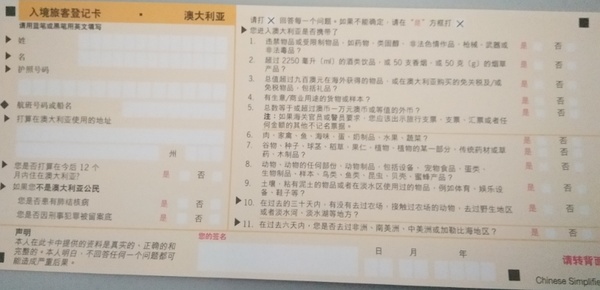 入境旅客登记卡 • 澳大利亚
请用蓝笔或黑笔用英文填写
姓
名
护照号码
航班号码或船名
打算在澳大利亚使用的地址
州
您是否打算在今后 12 个
月内住在澳大利亚? 是 否
如果您不是澳大利亚公民
您是否患有肺结核病 是 否
您是否因刑事犯罪被留案底 是 否
声明
本人在此卡中提供的资料是真实的、正确的和
完整的。本人明白,不回答任何一个问题都可
能造成严重后果。
请打 X 回答每一个问题。如果不能确定,请在“是”方框打 X
您进入澳大利亚是否携带了
1. 违禁物品或受限制物品,如药物、类固醇、非法色情作品、枪械、武器或
非法毒品? 是 否
2. 超过 2250 毫升(ml)的酒类饮品、或 50 支香烟、或 50 克(g)的烟草
产品? 是 否
3. 总值超过九百澳元在海外获得的物品,或在澳大利亚购买的免关税及/或
免税物品,包括礼品? 是 否
4. 有生意/商业用途的货物或样本? 是 否
5. 总数等于或超过澳币一万元澳币或等值的外币? 是 否
注:如果海关官员或警员要求,您应出示旅行支票、支票、汇票或者任
何金额的其他不记名票据。
6. 肉、家禽、鱼、海味、蛋、奶制品、水果、蔬菜? 是 否
7. 谷物、种子、球茎、稻草、果仁、植物、植物的某一部分、传统药材或草
药、木制品? 是 否
8. 动物、动物的任何部份、动物制品,包括设备、宠物食品、蛋类、
生物制品、样本、鸟类、鱼类、昆虫、贝壳、蜜蜂产品? 是 否
9. 土壤,粘有泥土的物品或者在淡水区使用过的物品,例如体育、娱乐设
备、鞋子等? 是 否
10. 在过去的三十天内,有没有去过农场、接触过农场的动物、去过野生地区
或者淡水河、淡水湖等地方? 是 否
11. 在过去六天内,您是否去过非洲、南美洲、中美洲或加勒比海地区? 是 否
您的签名
日 月 年
请转背
Chinese Simplifie